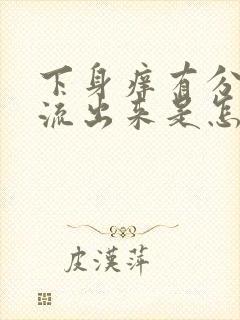 下身痒有分
流出来是怎
皮漢萍